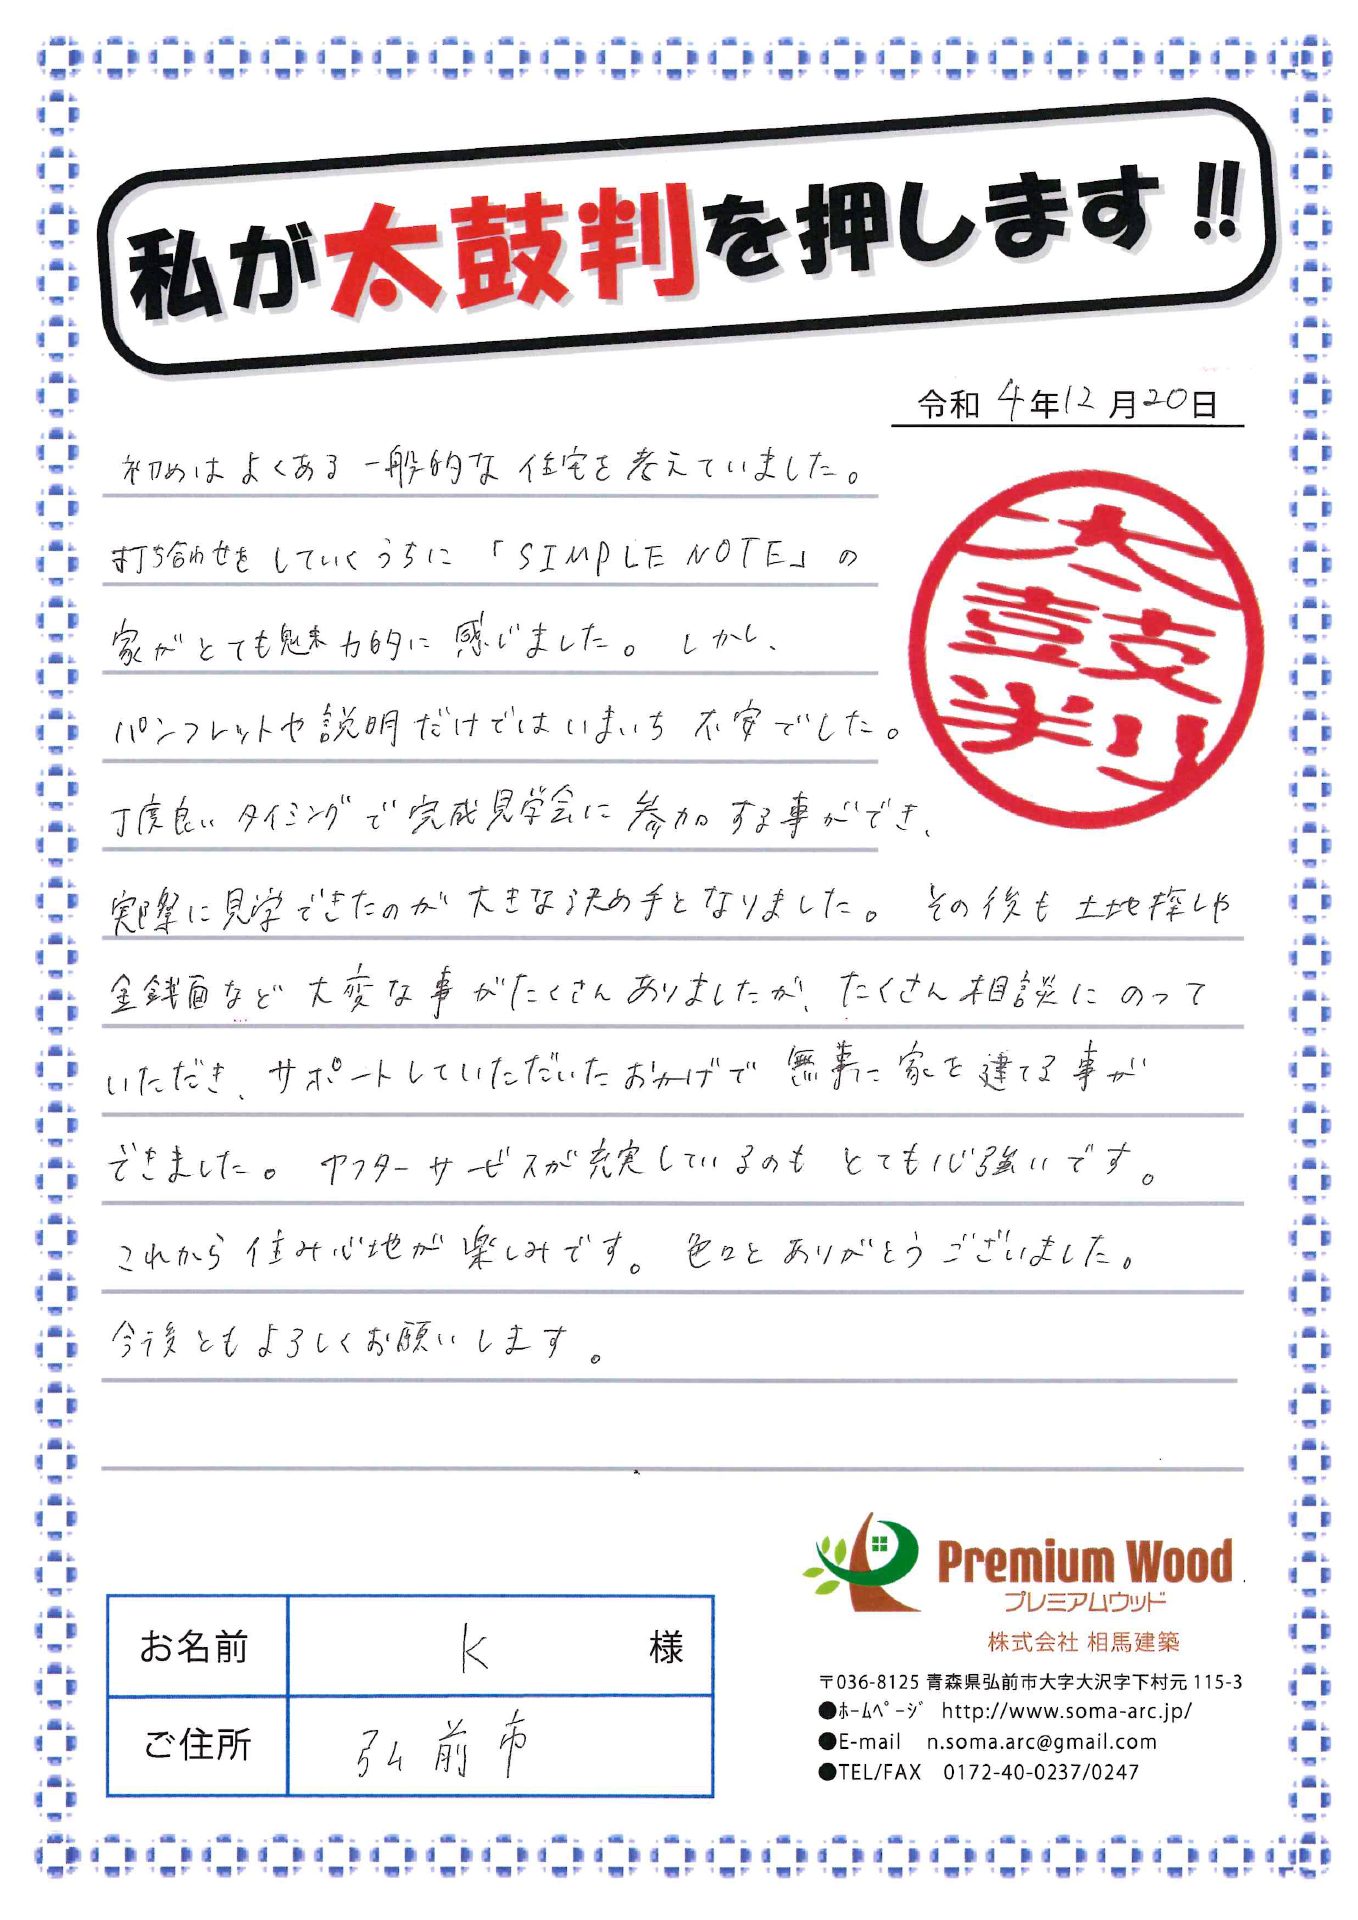 私が太鼓判を押します!!
令和 4年12月20日
初めはよくある一般的な住宅を考えていました。
打ち合わせをしていくうちに「SIMPLE NOTE」の
家がとても魅力的に感じました。しかし、
パンフレットや説明だけではいまいち不安でした。
丁度良いタイミングで完成見学会に参加する事ができ、
実際に見学できたのが大きな決め手となりました。その後も土地探しや
金銭面など大変な事がたくさんありましたが、たくさん相談にのって
いただき、サポートしていただいたおかげで無事に家を建てる事が
できました。アフターサービスが充実しているのもとても心強いです。
これから住み心地が楽しみです。色々とありがとうございました。
今後ともよろしくお願いします。
太鼓判
Premium Wood
プレミアムウッド
株式会社 相馬建築
〒036-8125 青森県弘前市大字大沢字下村元 115-3
●ホームページ http://www.soma-arc.jp/
●E-mail n.soma.arc@gmail.com
●TEL/FAX 0172-40-0237/0247
お名前 K 様
ご住所 弘前市